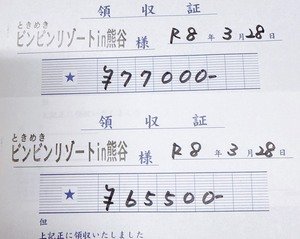 領収証
ときめき
ビンビンリゾートin熊谷 様 R8年3月28日
★ ¥77000-
領収証
ときめき
ビンビンリゾートin熊谷 様 R8年3月28日
★ ¥65500-
但
上記正に領収いたしました